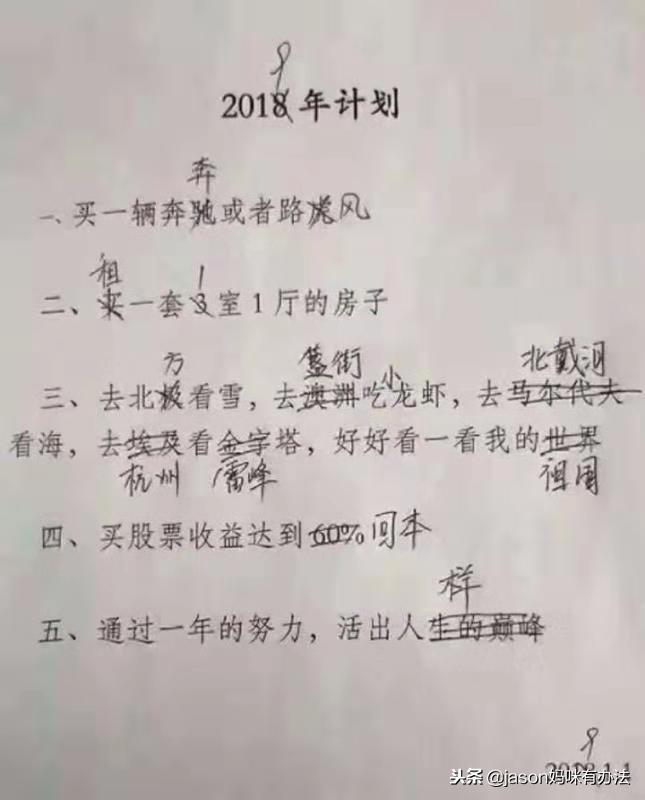 9
2018年计划
奔
一、买一辆奔驰或者路虎风
租 1
二、买一套3室1厅的房子
方 簋街 小 北戴河
三、去北极看雪，去澳洲吃龙虾，去马尔代夫
看海，去埃及看金字塔，好好看一看我的世界
杭州 雷峰 祖国
四、买股票收益达到60%回本
样
五、通过一年的努力，活出人生的巅峰
9
2018.1.1
头条 @jason妈咪有办法